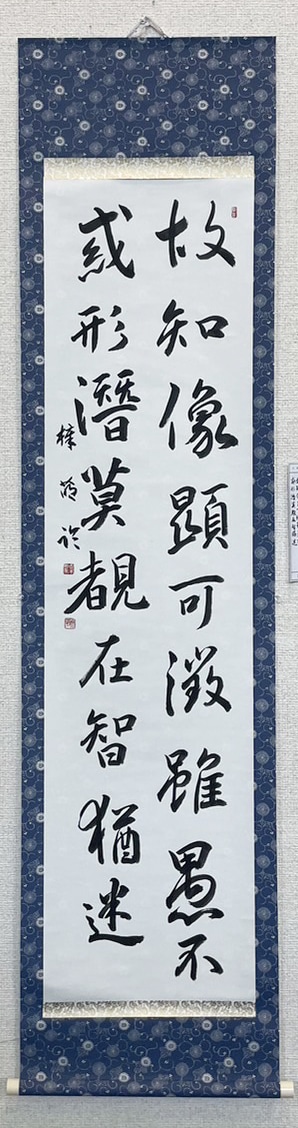 故知像顕可澂雖愚不
惑形潛莫覩在智猶迷